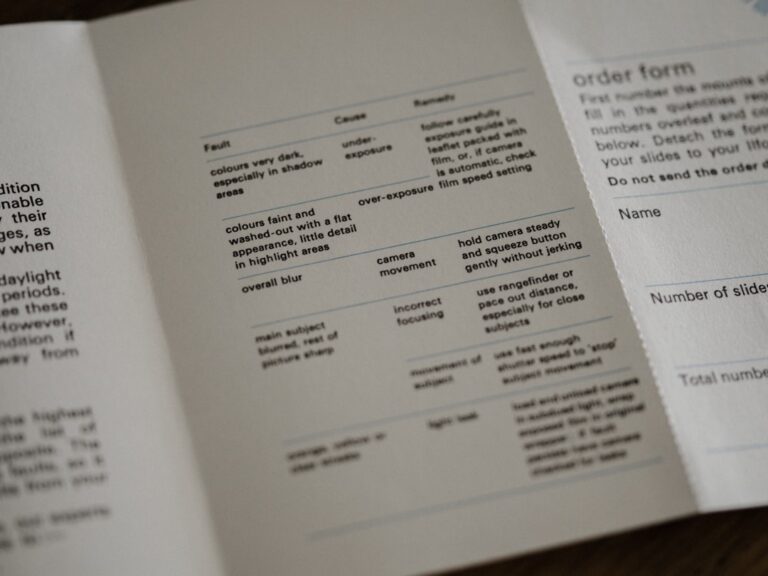 dition
nable
their
ges, as
w when
daylight
periods.
see these
However,
ndition if
way from
the highest
the list of
posite. The
faults, as it
from your
Fault Cause Remedy
colours very dark,
especially in shadow
areas
under-
exposure
follow carefully
exposure guide in
leaflet packed with
film, or, if camera
is automatic, check
film speed setting
colours faint and
washed-out with a flat
appearance, little detail
in highlight areas
over-exposure
overall blur
camera
movement
hold camera steady
and squeeze button
gently without jerking
main subject
blurred, rest of
picture sharp
incorrect
focusing
use rangefinder or
pace out distance,
especially for close
subjects
movement of
subject
use fast enough
shutter speed to 'stop'
subject movement
orange, yellow or
light leak
load and unload camera
in subdued light, wrap
exposed film in original
order form
First number the mounts
fill in the quantities
numbers overleaf and
below. Detach the form
your slides to your
Do not send the order
Name
Number of slides
Total numbe